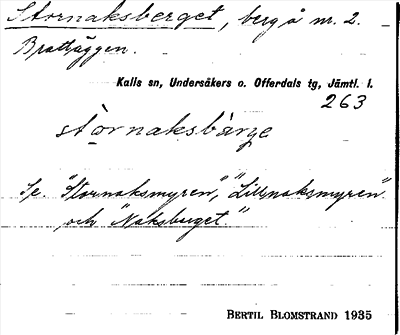 Stornaksberget, berg å nr. 2.
Brattåggen.
Kalls sn, Undersåkers o. Offerdals tg, Jämtl. l.
263
stòrnaksbàrge
Se. "Stornaksmyren", "Lillnaksmyren"
och "Naksberget."
BERTIL BLOMSTRAND 1935